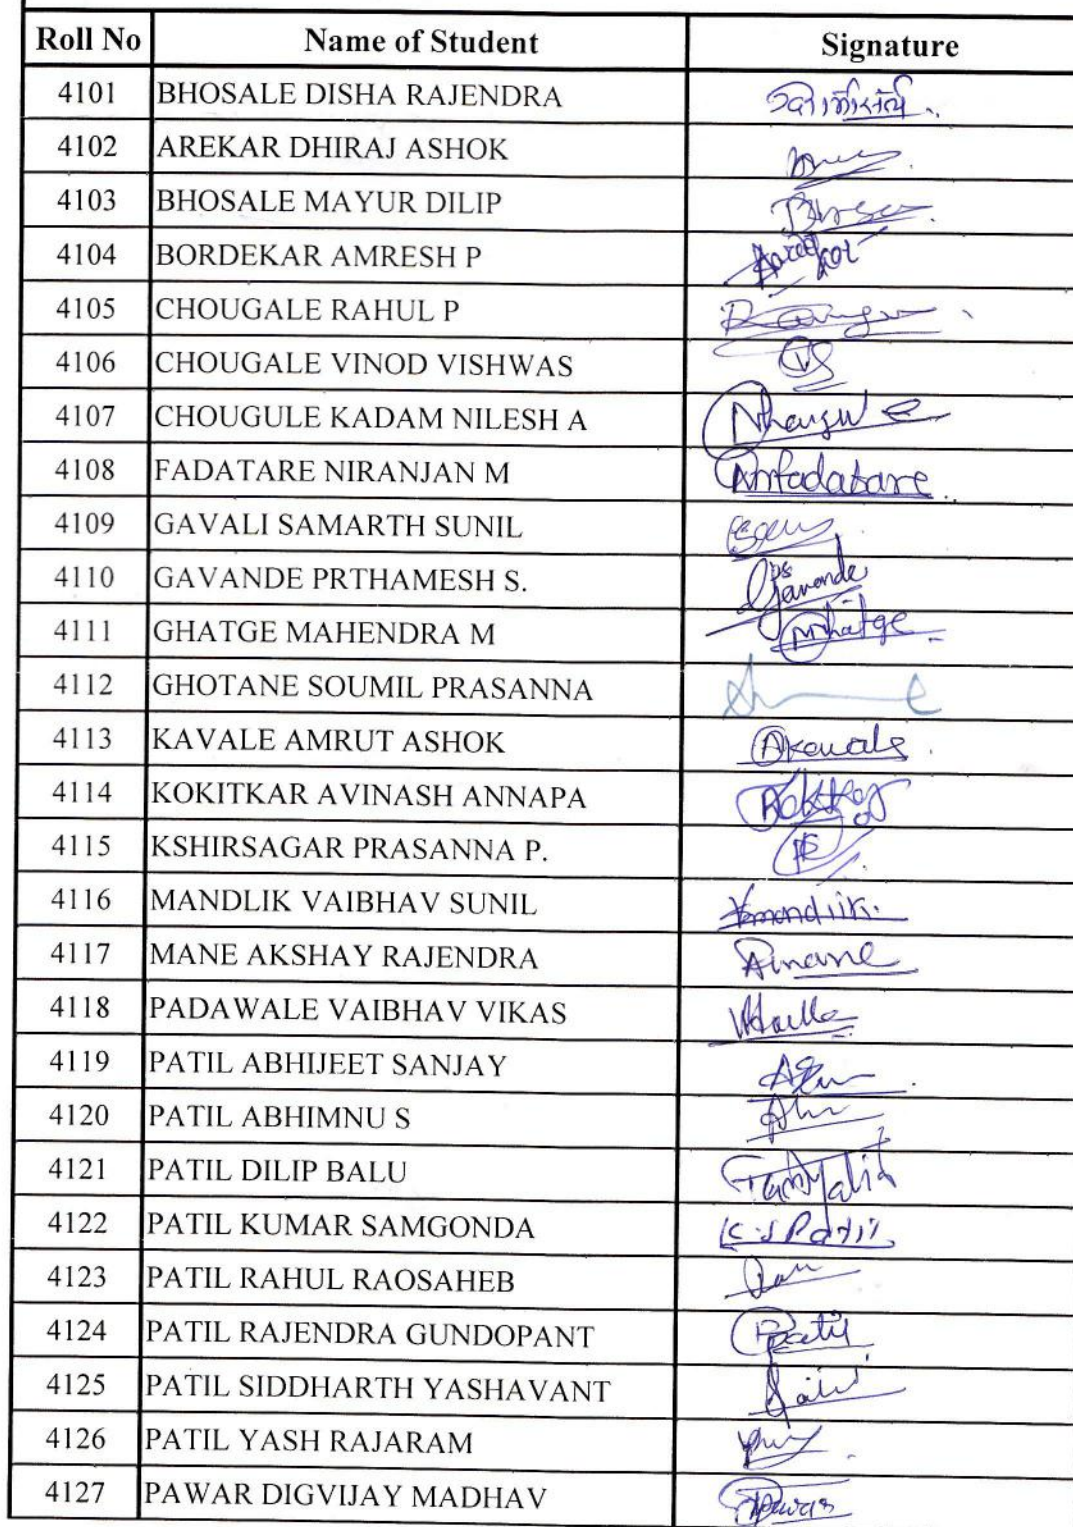 Roll No Name of Student Signature
4101 BHOSALE DISHA RAJENDRA
4102 AREKAR DHIRAJ ASHOK
4103 BHOSALE MAYUR DILIP
4104 BORDEKAR AMRESH P
4105 CHOUGALE RAHUL P
4106 CHOUGALE VINOD VISHWAS
4107 CHOUGULE KADAM NILESH A
4108 FADATARE NIRANJAN M NMFadatare
4109 GAVALI SAMARTH SUNIL
4110 GAVANDE PRTHAMESH S. Gavande
4111 GHATGE MAHENDRA M
4112 GHOTANE SOUMIL PRASANNA
4113 KAVALE AMRUT ASHOK
4114 KOKITKAR AVINASH ANNAPA
4115 KSHIRSAGAR PRASANNA P.
4116 MANDLIK VAIBHAV SUNIL
4117 MANE AKSHAY RAJENDRA
4118 PADAWALE VAIBHAV VIKAS
4119 PATIL ABHIJEET SANJAY
4120 PATIL ABHIMNU S
4121 PATIL DILIP BALU
4122 PATIL KUMAR SAMGONDA K.S Patil
4123 PATIL RAHUL RAOSAHEB
4124 PATIL RAJENDRA GUNDOPANT
4125 PATIL SIDDHARTH YASHAVANT
4126 PATIL YASH RAJARAM
4127 PAWAR DIGVIJAY MADHAV